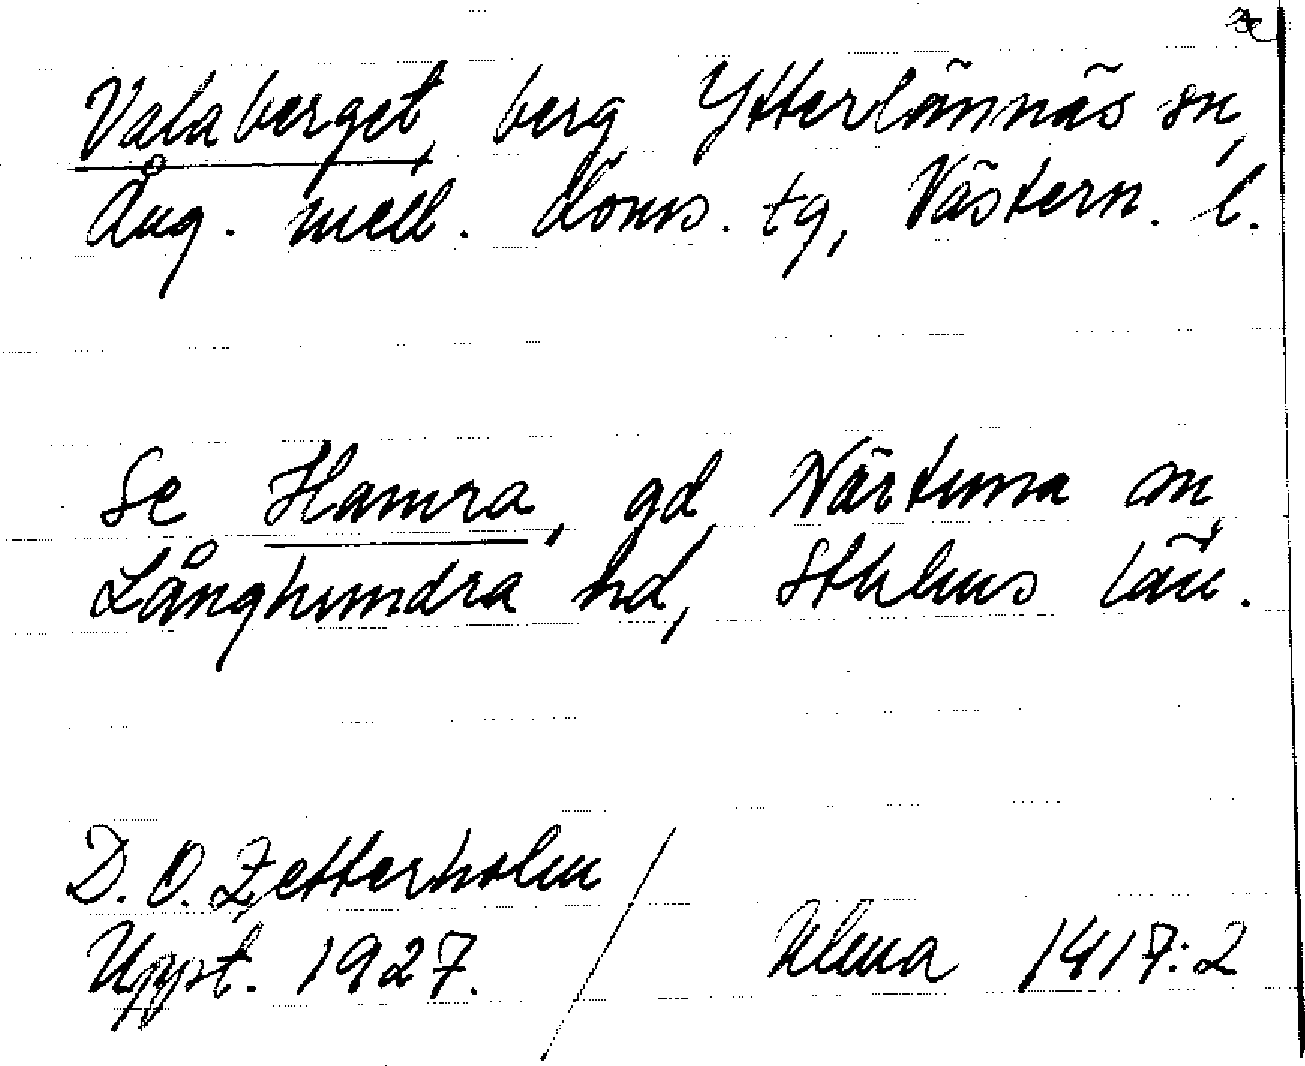 Valaberget, berg, Ytterlännäs sn,
Ång. mell. doms. tg, Västern. l.
Se Hamra, gd, Närtuna sn,
Långhundra hd, Sthlms län.
D. O. Zetterholm
Uppt. 1927. / Ulma 1417:2